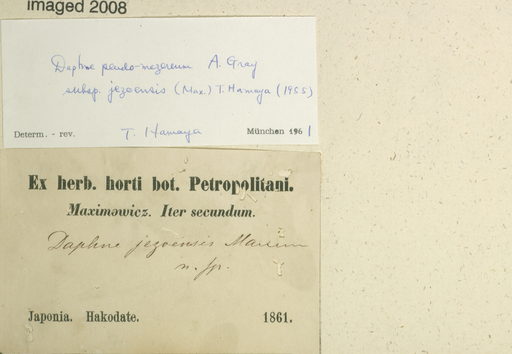 imaged 2008
Daphne pseudo-mezereum A. Gray
subsp. jezoensis (Max.) T. Hamaya (1955)
Determ. - rev. T. Hamaya München 1961
Ex herb. horti bot. Petropolitani.
Maximowicz. Iter secundum.
Daphne jezoensis Maxim
n. sp.
Japonia. Hakodate. 1861.